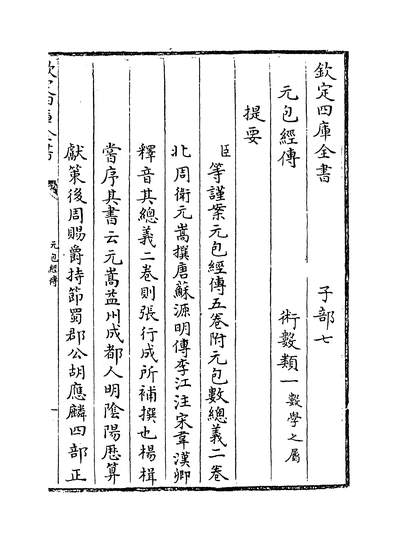 欽定四庫全書　　　子部七
元包經傳　　　術數類一數學之屬
提要
臣等謹案元包經傳五卷附元包數總義二卷
北周衛元嵩撰唐蘇源明傳李江注宋韋漢卿
釋音其總義二卷則張行成所補撰也楊楫
嘗序其書云元嵩益州成都人明陰陽厯算
獻策後周賜爵持節蜀郡公胡應麟四部正
欽定四庫全書
元包經傳
一